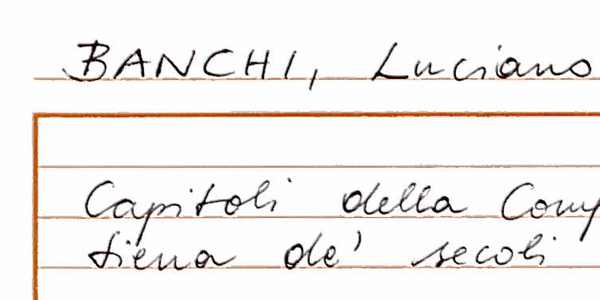 BANCHI, Luciano
Capitoli della Comp
siena de' secoli